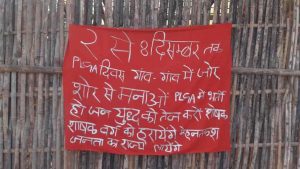 २ से ८ दिसम्बर तक
PLGA दिवस गांव-गांव में जोर
शोर से मनाओ PLGA में भर्ती
हो जन युद्ध को तेज करो शोषक
शासक वर्ग को हरायेंगे मेहनतकश
जनता का राज्य लायेंगे